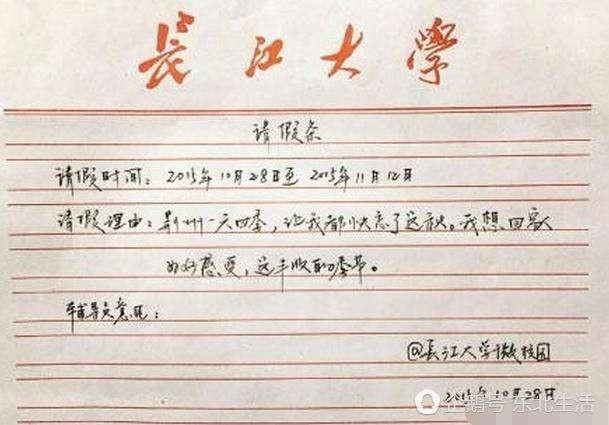 長江大學
请假条
请假时间：2015年10月28日至 2015年11月12日
请假理由：荆州一天四季，让我都快忘了这是秋。我想回家
好好感受，这丰收的季节。
辅导员意见：
@長江大学微校园
2015年10月28日
企鹅号 东北生活